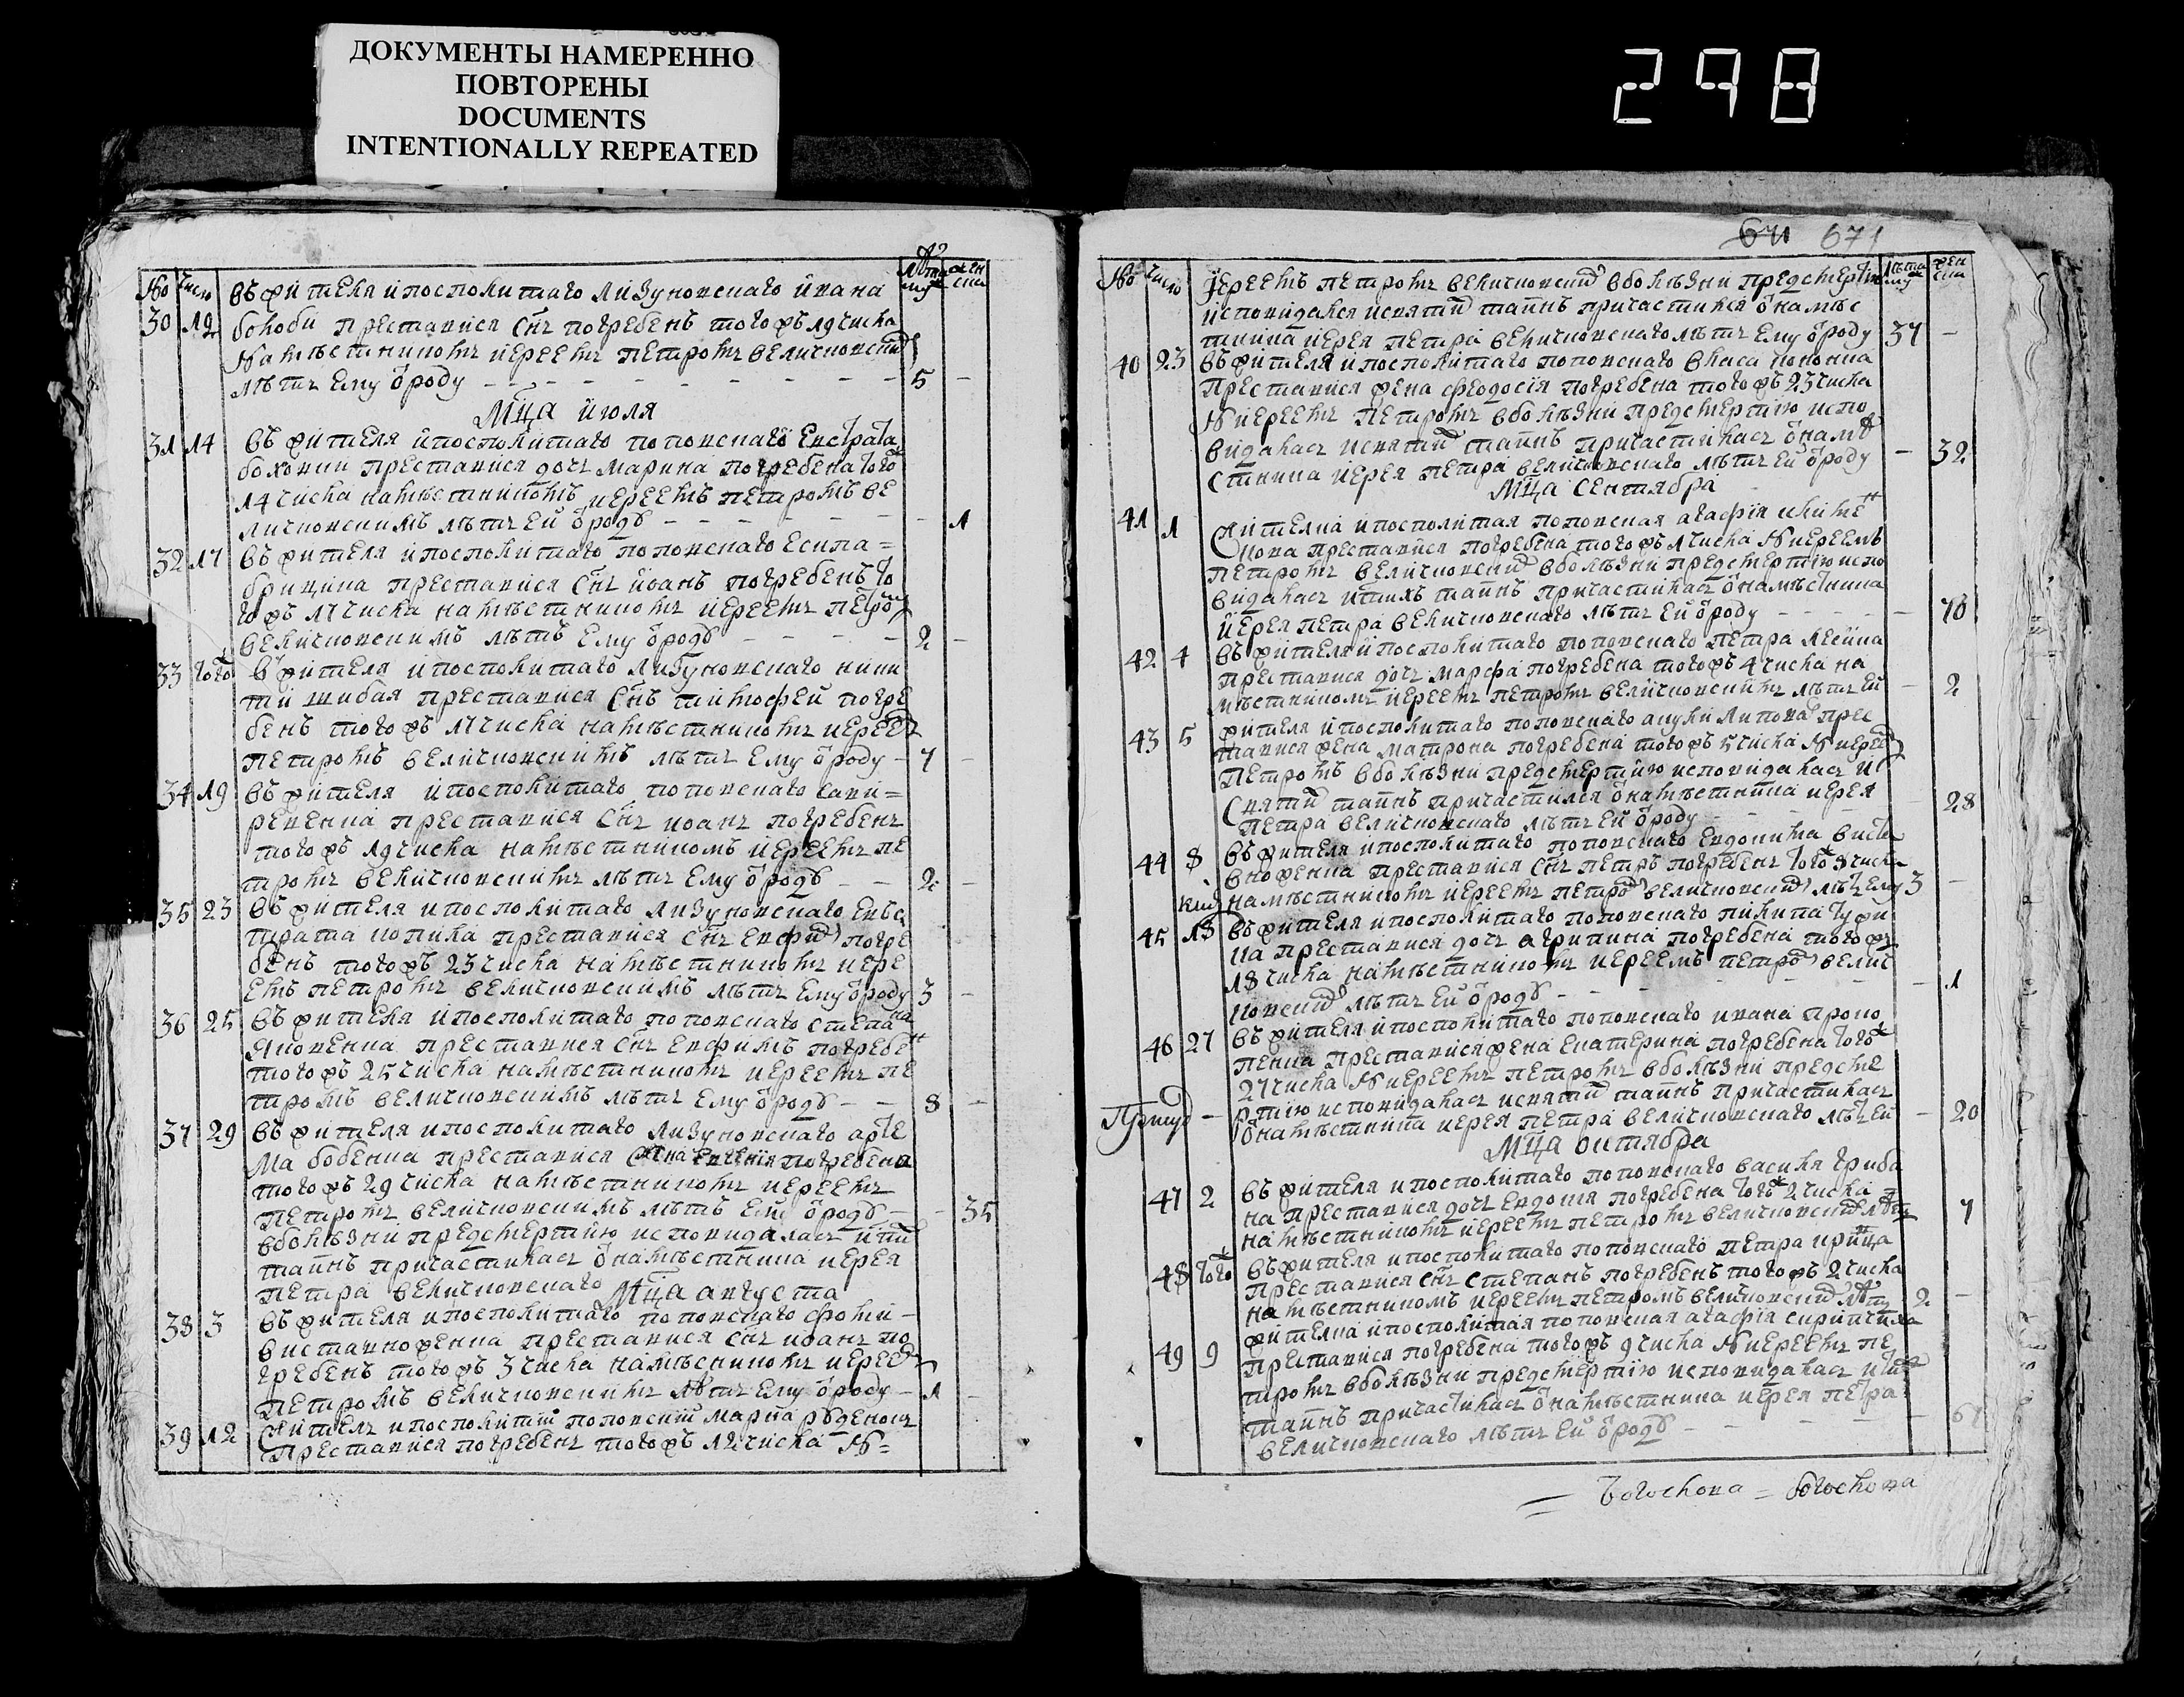 ДОКУМЕНТЫ НАМЕРЕННО
ПОВТОРЕНЫ
DOCUMENTS
INTENTIONALLY REPEATED
298
№ число лѣта муж женска
30 19 въ жителя и посполитаго лизуновскаго ивана
преставися снъ погребенъ того жъ 19 числа
намѣстникомъ иереемъ петромъ величковским
лѣтъ ему ѿроду 5
Мца июля
31 14 въ жителя и посполитаго поповскаго евстрата
преставися дочъ марина погребена того ж
14 числа намѣстникомъ иереемъ петромъ ве
личковскимъ лѣтъ ей ѿроду 1
32 17 въ жителя и посполитаго поповскаго есипа
преставися снъ иванъ погребенъ то
го жъ 17 числа намѣстникомъ иереемъ петром
величковскимъ лѣтъ ему ѿроду 2
33 того ж въ жителя и посполитаго лизуновскаго ники
ти шибая преставися снъ тимофей погре
бенъ того жъ 17 числа намѣстникомъ иереем
петромъ величковскимъ лѣтъ ему ѿроду 7
34 19 въ жителя и посполитаго поповскаго
преставися снъ иоанъ погребенъ
того жъ 19 числа намѣстникомъ иереемъ пе
тромъ величковскимъ лѣтъ ему ѿроду 2
35 23 въ жителя и посполитаго лизуновскаго евъс
трата преставися снъ евфим погре
бенъ того жъ 23 числа намѣстникомъ иере
емъ петромъ величковскимъ лѣтъ ему ѿроду 3
36 25 въ жителя и посполитаго поповскаго степана
яковенка преставися снъ евфимъ погребен
того жъ 25 числа намѣстникомъ иереемъ пе
тромъ величковскимъ лѣтъ ему ѿроду 8
37 29 въ жителя и посполитаго лизуновскаго арте
ма бобенка преставися жена евгения погребена
того жъ 29 числа намѣстникомъ иереемъ
петромъ величковскимъ лѣтъ ей ѿроду 35
в болѣзни предсмертию исповидалась и
таинъ причастилась ѿ намѣстника иерея
петра величковскаго
Мца августа
38 3 въ жителя и посполитаго поповскаго
преставися снъ иоанъ по
гребенъ того жъ 3 числа намѣсникомъ иереем
петромъ величковскимъ лѣтъ ему ѿроду 1
39 12 житель и посполитий поповский
преставися погребенъ того жъ 12 числа Н
671
№ число лѣта муж женска
иереемъ петромъ величковским в болѣзни предсмертию
исповидался и святих таинъ причастился ѿ намѣс
тника иерея петра величковскаго лѣтъ ему ѿроду 37
40 23 въ жителя и посполитаго поповскаго власа
преставися жена феодосия погребена того жъ 23 числа
Н иереемъ петромъ в болѣзни предсмертию испо
видалась и святих таинъ причастилась ѿ намѣ
стника иерея петра величковскаго лѣтъ ей ѿроду 32
Мца сентября
41 1 жителка и посполитая поповская агафия
преставися погребена того жъ 1 числа Н иереемъ
петромъ величковским в болѣзни предсмертию испо
видалась и таинъ причастилась ѿ намѣстника
иерея петра величковскаго лѣтъ ей ѿроду 70
42 4 въ жителя и посполитаго поповскаго петра
преставися дочъ марфа погребена того жъ 4 числа на
мѣстникомъ иереемъ петромъ величковскимъ лѣтъ ей 2
43 5 жителя и посполитаго поповскаго луки липова прес
тавися жена матрона погребена того жъ 5 числа Н иереем
петромъ в болѣзни предсмертию исповидалась и
святих таинъ причастился ѿ намѣстника иерея
петра величковскаго лѣтъ ей ѿроду 28
44 8 въ жителя и посполитаго поповскаго евдокима
преставися снъ петръ погребенъ того ж 8 числа
намѣстникомъ иереемъ петром величковским лѣтъ ему 3
45 18 въ жителя и посполитаго поповскаго
преставися дочъ агрипина погребена того жъ
18 числа намѣстникомъ иереемъ петром велич
ковским лѣтъ ей ѿроду 1
46 27 въ жителя и посполитаго поповскаго ивана проко
пенка преставися жена екатерина погребена того ж
27 числа Н иереемъ петромъ в болѣзни предсме
ртию исповидалась и святих таинъ причастилась
ѿ намѣстника иерея петра величковскаго лѣтъ ей 20
Мца октября
47 2 въ жителя и посполитаго поповскаго василя
преставися дочъ евдокия погребена того ж 2 числа
намѣстникомъ иереемъ петромъ величковским лѣтъ 7
48 того ж въ жителя и посполитаго поповскаго петра
преставися снъ степанъ погребенъ того жъ 2 числа
намѣстникомъ иереемъ петромъ величковским лѣтъ 2
49 9 жителка и посполитая поповская агафия
преставися погребена того жъ 9 числа Н иереемъ пе
тромъ в болѣзни предсмертию исповидалась и
таинъ причастилась ѿ намѣстника иерея петра
величковскаго лѣтъ ей ѿроду